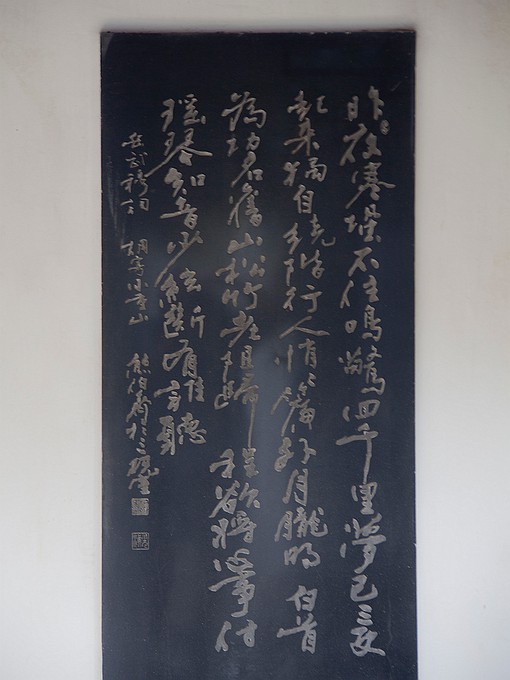 昨夜寒蛩不住鳴驚回千里夢已三更
起來獨自繞階行人悄々簾外月朧明白首
為功名舊山松竹老阻歸程欲將心事付
瑤琴知音少絃斷有誰聽
岳武穆詞 調寄小重山 熊伯齊於